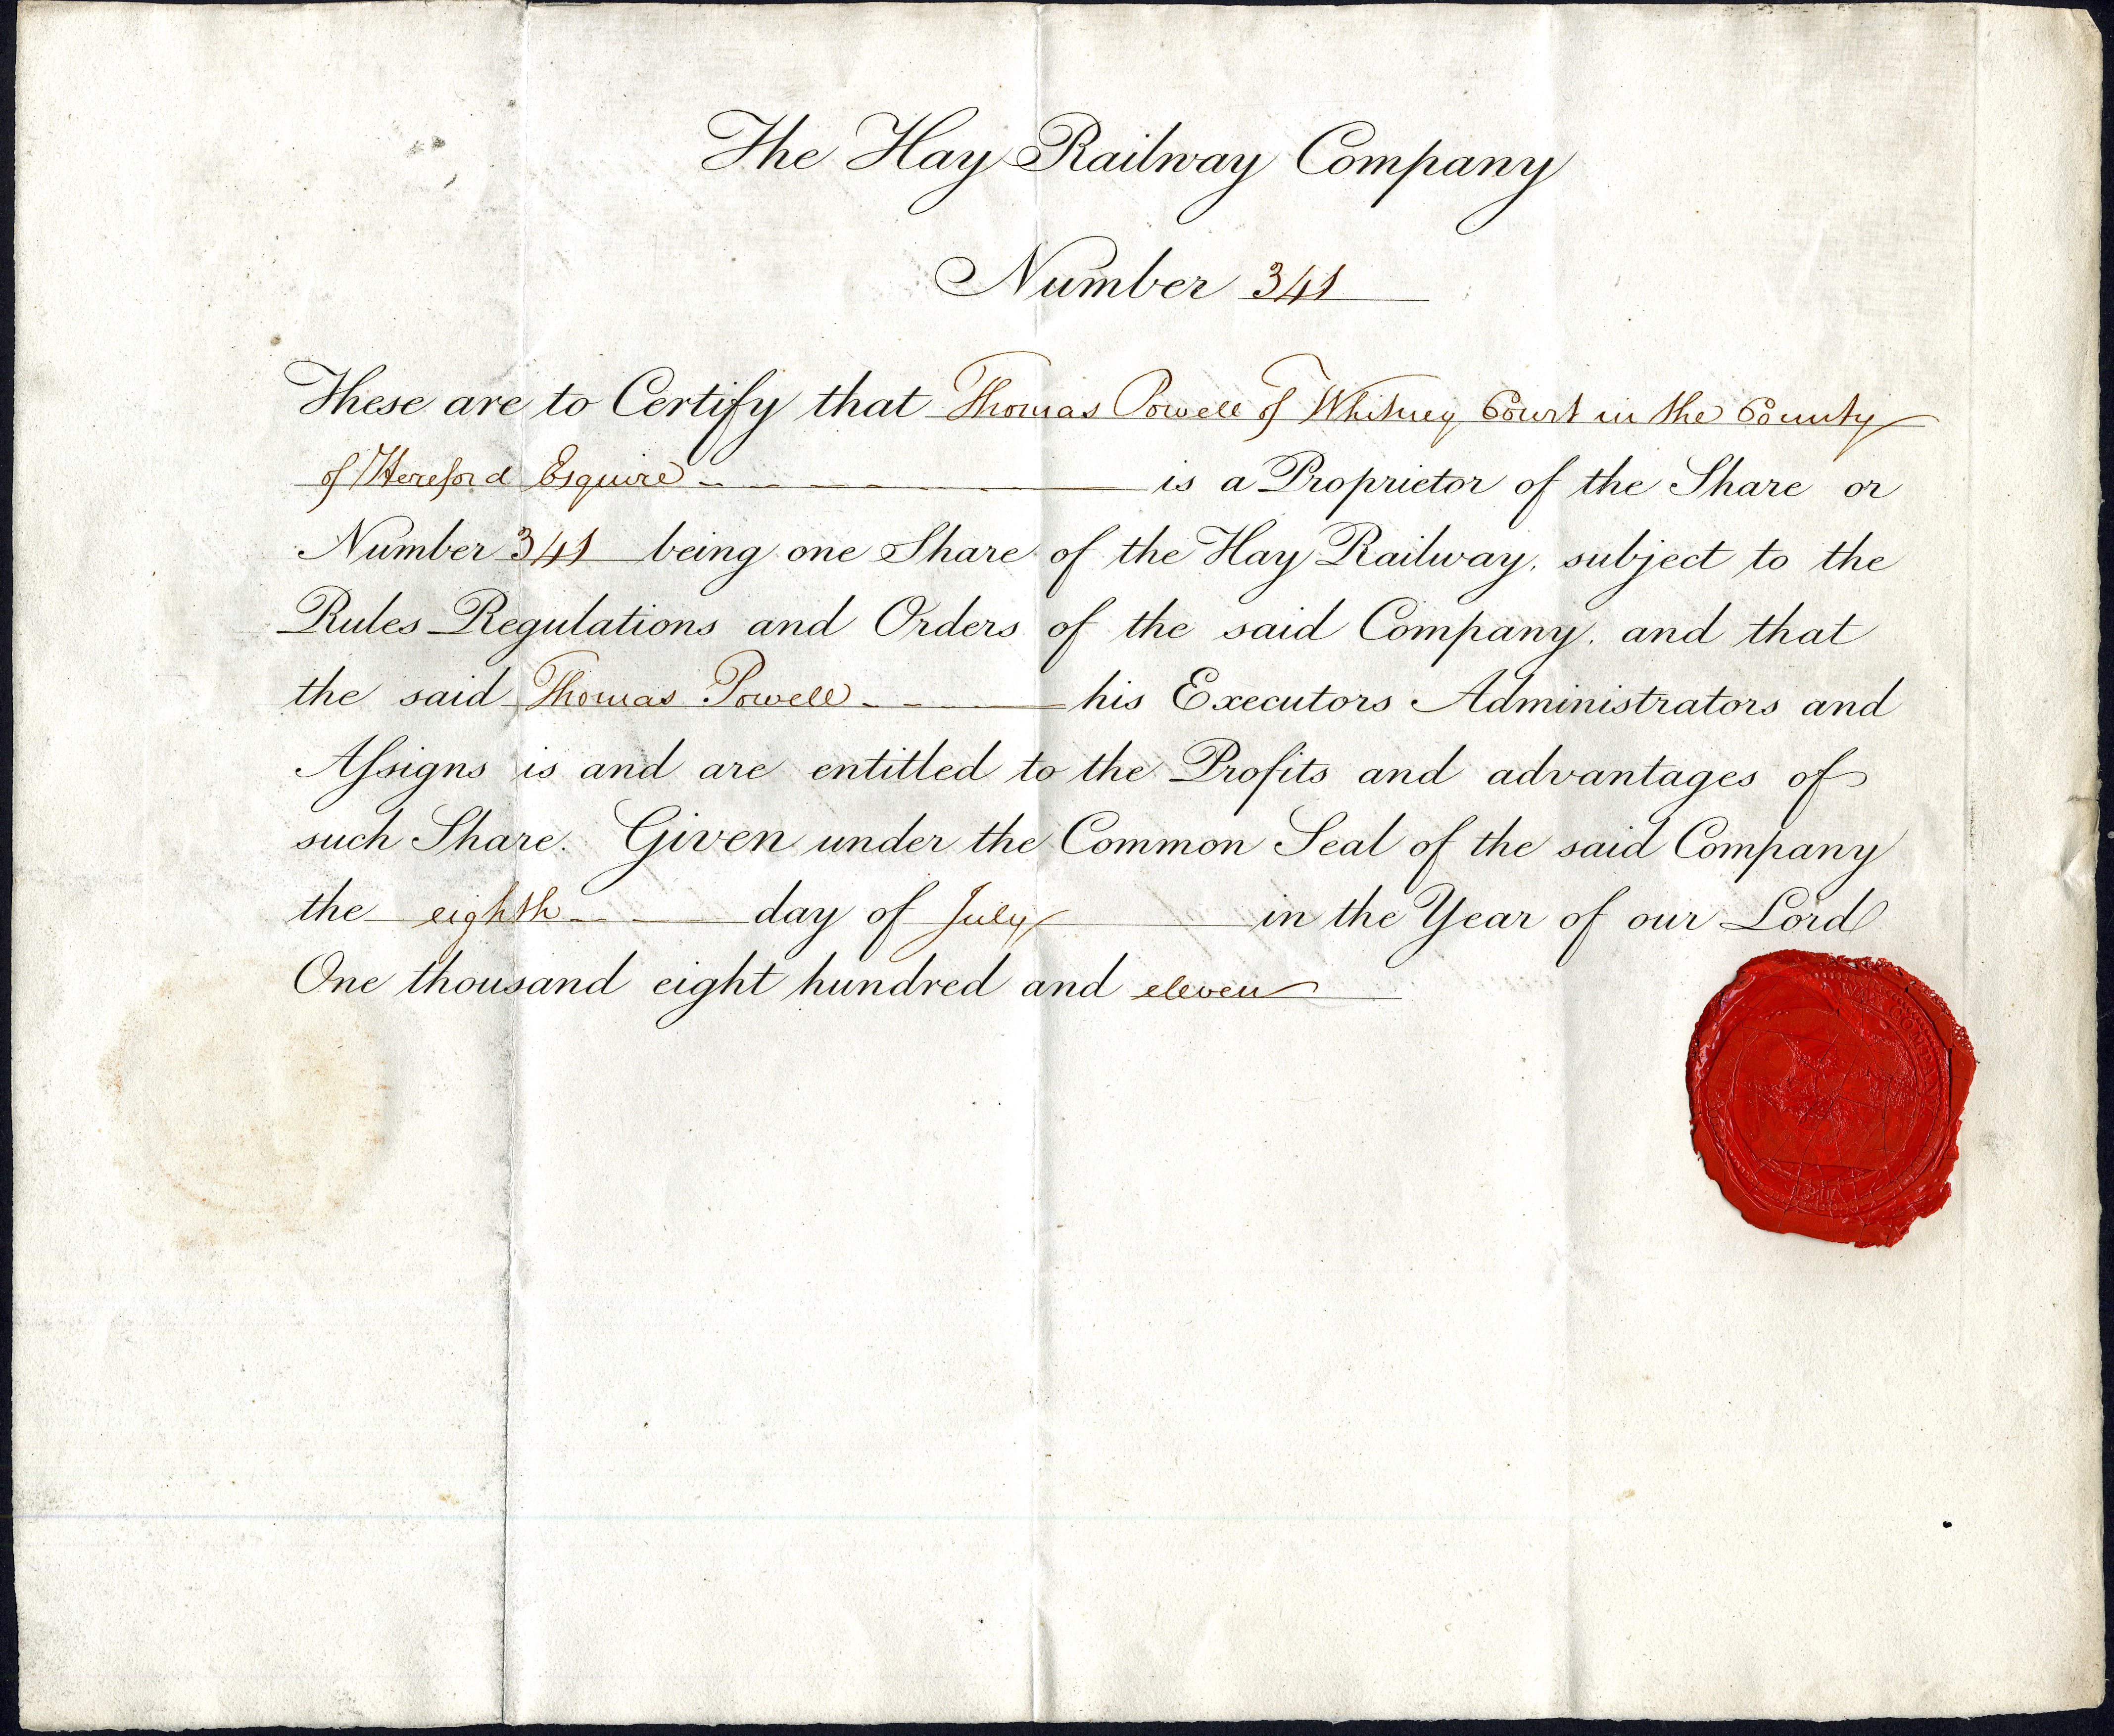 The Hay Railway Company
Number 341
These are to Certify that Thomas Powell of Whitney Court in the County
of Hereford Esquire is a Proprietor of the Share or
Number 341 being one Share of the Hay Railway, subject to the
Rules Regulations and Orders of the said Company, and that
the said Thomas Powell his Executors Administrators and
Aſsigns is and are entitled to the Profits and advantages of
such Share. Given under the Common Seal of the said Company
the eighth day of July in the Year of our Lord
One thousand eight hundred and eleven
COMPANY